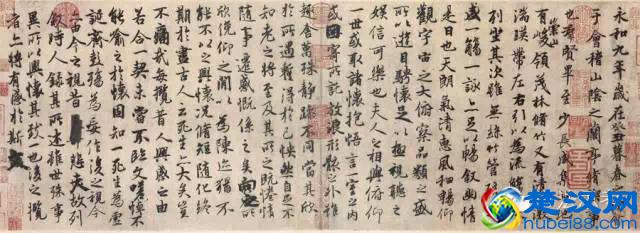 永和九年歲在癸丑暮春之初會
于會稽山陰之蘭亭脩稧事
也羣賢畢至少長咸集此地
有崇山峻領茂林脩竹又有清流激
湍暎帶左右引以為流觴曲水
列坐其次雖無絲竹管弦之
盛一觴一詠亦足以暢敘幽情
是日也天朗氣清惠風和暢仰
觀宇宙之大俯察品類之盛
所以遊目騁懷足以極視聽之
娛信可樂也夫人之相與俯仰
一世或取諸懷抱悟言一室之內
或因寄所託放浪形骸之外雖
趣舍萬殊靜躁不同當其欣
於所遇蹔得於己怏然自足不
知老之將至及其所之既惓情
隨事遷感慨係之矣向之所
欣俛仰之閒以為陳迹猶不
能不以之興懷況脩短隨化終
期於盡古人云死生亦大矣豈
不痛哉每攬昔人興感之由
若合一契未嘗不臨文嗟悼不
能喻之於懷固知一死生為虛
誕齊彭殤為妄作後之視今
亦由今之視昔悲夫故列
敘時人錄其所述雖世殊事
異所以興懷其致一也後之攬
者亦將有感於斯文
楚汉网
hubei88.com